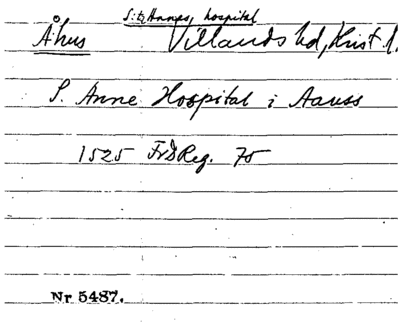 S:ta Annas, hospital
Åhus Villands hd, Krist. l.
S. Anne Hospital i Aauss
1525 FrdReg. 75
Nr 5487.